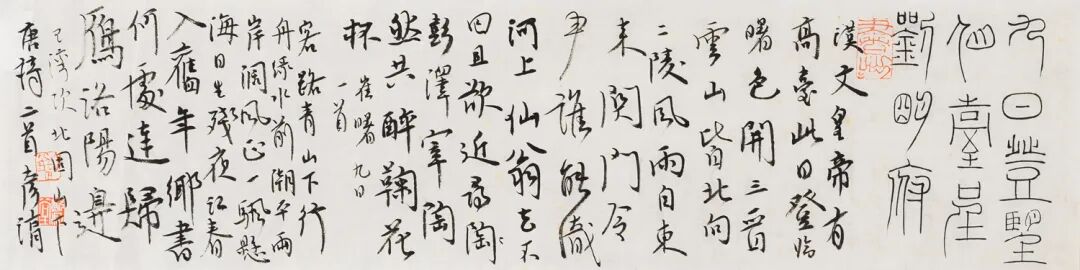 九日登望
仙臺呈
劉明府
漢文皇帝有
高臺此日登臨
曙色開三晉
雲山皆北向
二陵風雨自東
來關門令
尹誰能識
河上仙翁去不
回且欲近尋陶
彭澤宰陶
然共醉鞠花
杯 崔曙 九日
一首
客路青山下行
舟綠水前潮平兩
岸闊風正一帆懸
海日生殘夜江春
入舊年鄉書
何處達歸
鴈洛陽邊
王灣次北固山下
唐詩二首